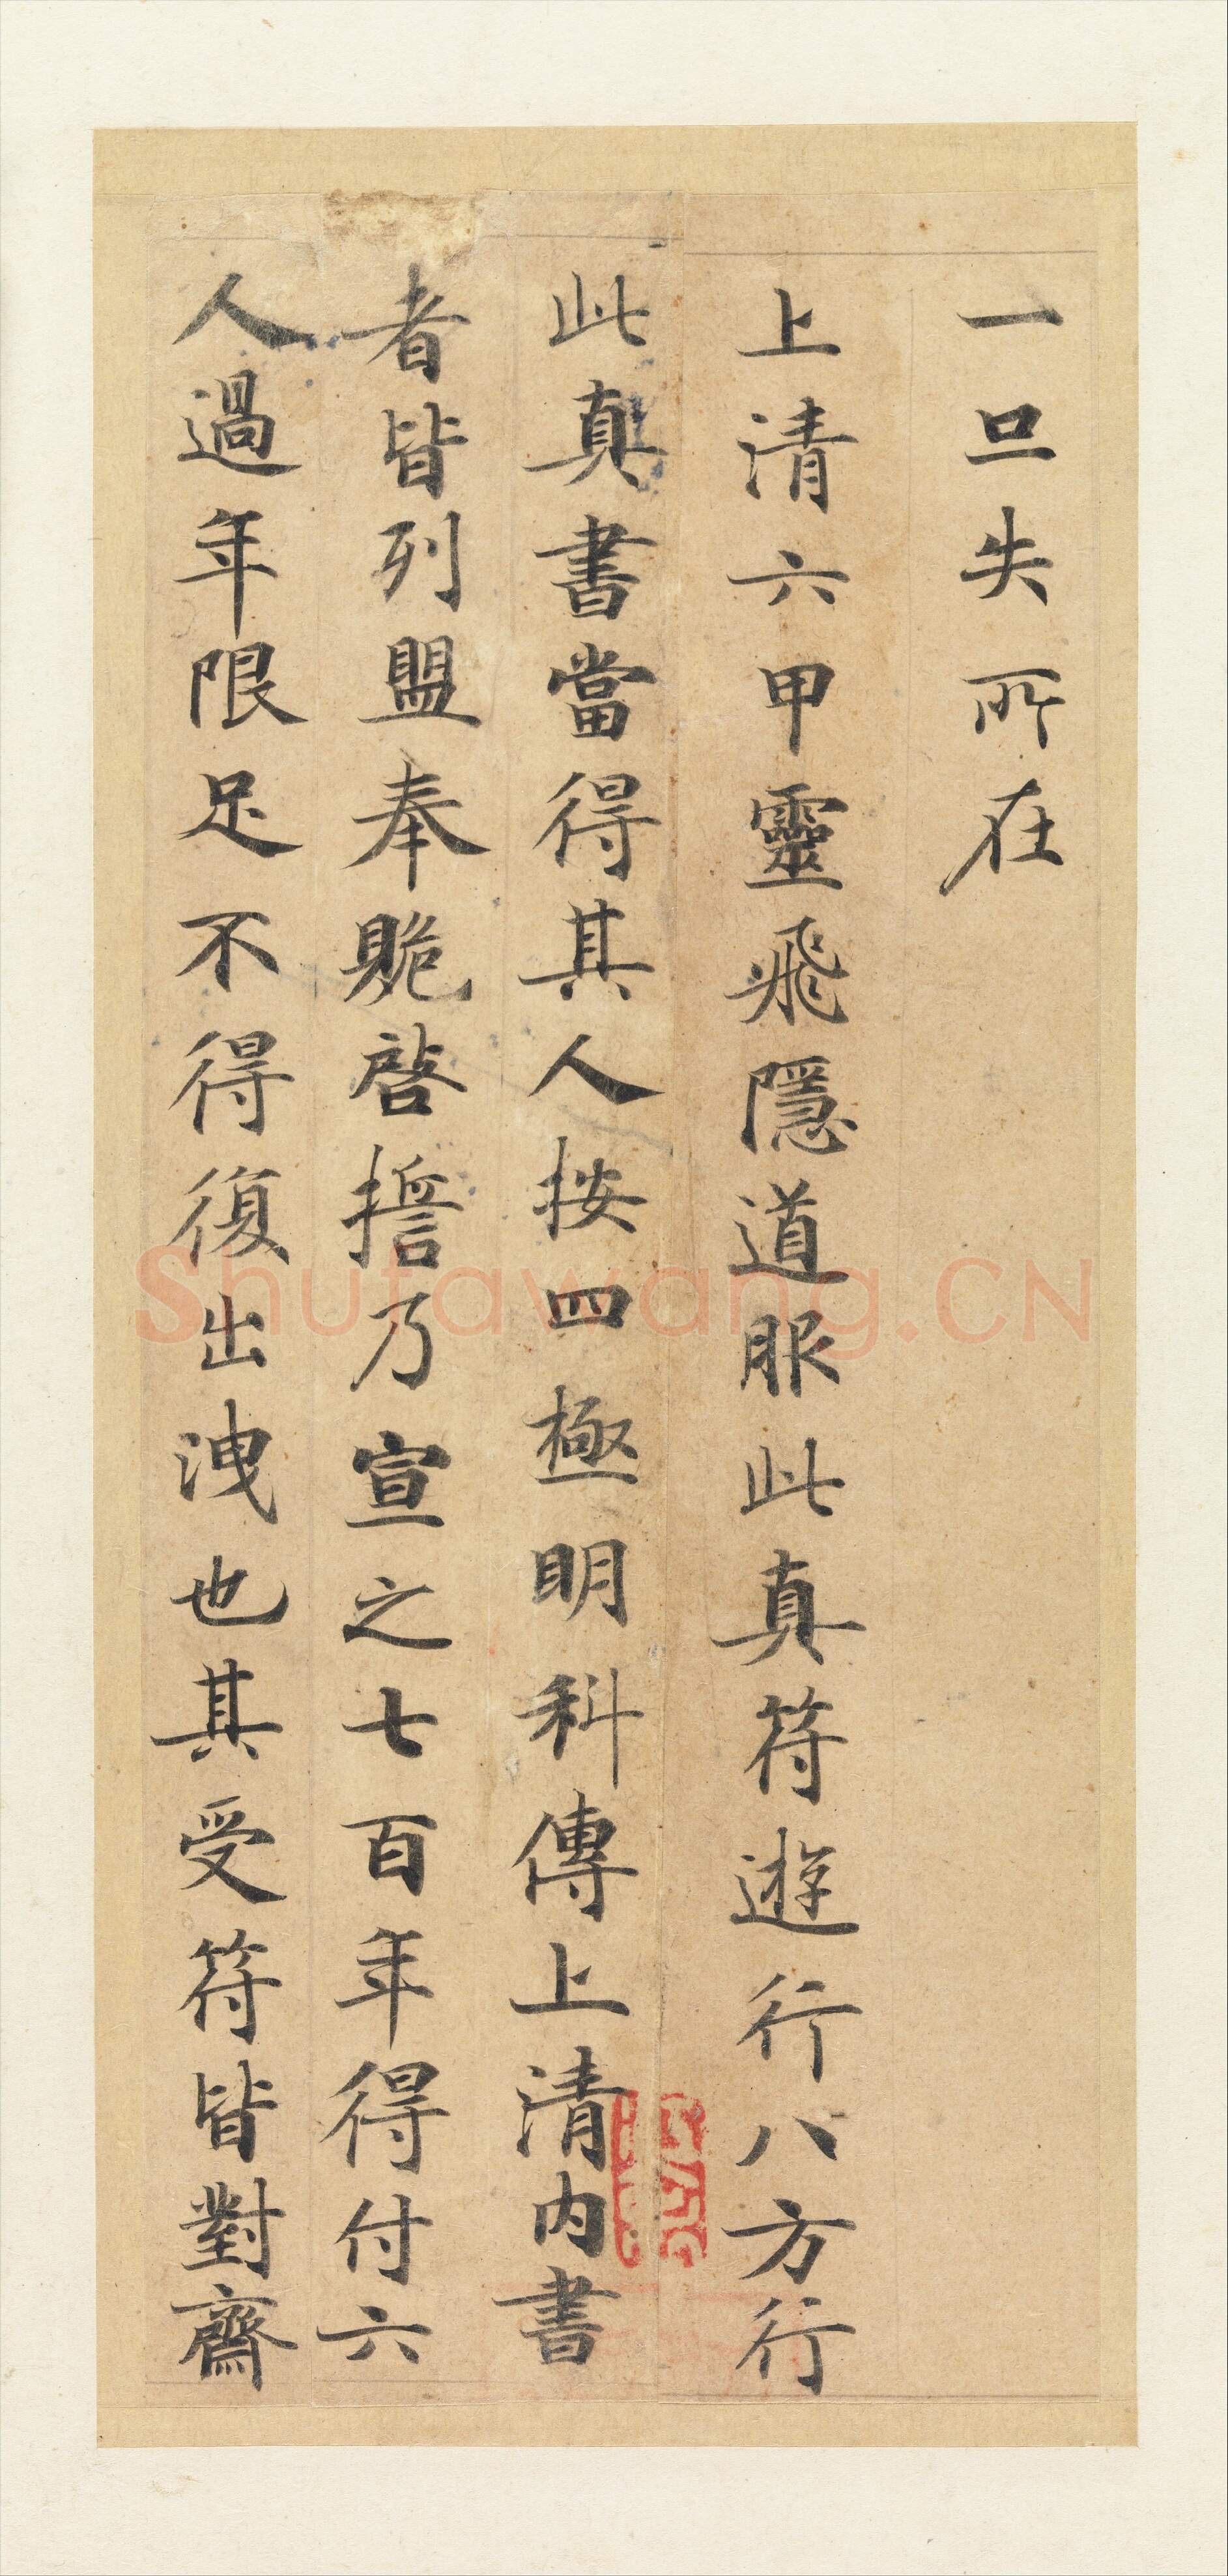 一旦失所在
上清六甲靈飛隱道服此真符遊行八方行
此真書當得其人按四極明科傳上清內書
者皆列盟奉贍啓擔乃宣之七百年得付六
人過年限足不得復出洩也其受符皆對齋
Shufawang.CN